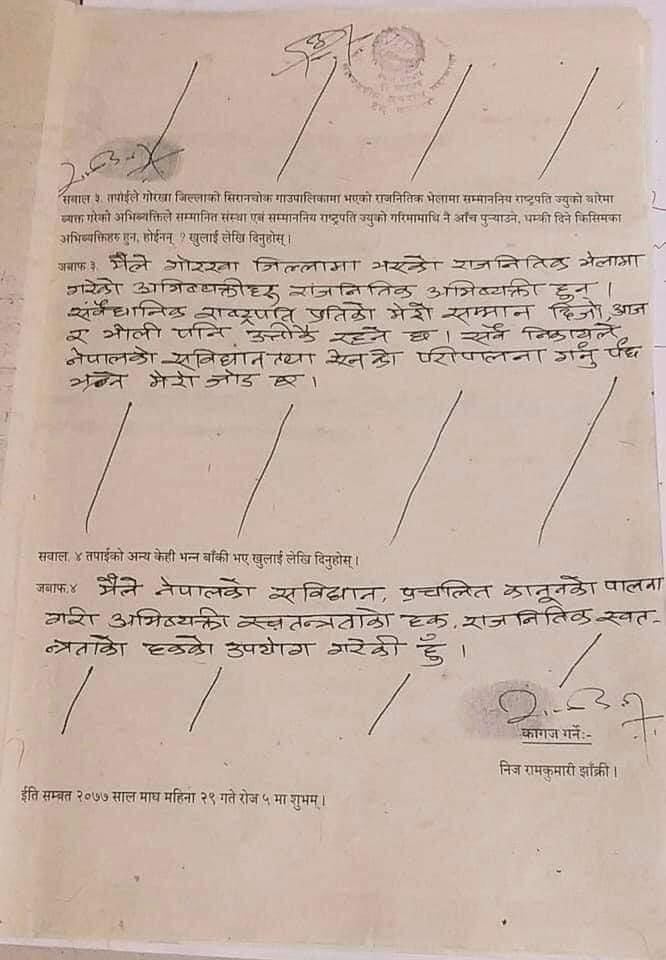 सवाल ३. तपाईले गोरखा जिल्लाको सिरानचोक गाउपालिकामा भएको राजनितिक भेलामा सम्माननिय राष्ट्रपति ज्युको बारेमा
ब्यक्त गरेको अभिब्यक्तिले सम्मानित संस्था एवं सम्माननिय राष्ट्रपति ज्युको गरिमामाथि नै आँच पुऱ्याउने, धम्की दिने किसिमका
अभिब्यक्तिहरु हुन, होईनन् ? खुलाई लेखि दिनुहोस् ।
जवाफ ३. मैले गोरखा जिल्लामा भएको राजनितिक भेलामा
गरेको अभिब्यक्तीहरु राजनितिक अभिब्यक्ती हुन् ।
संबैधानिक राष्ट्रपति प्रतिको मेरो सम्मान हिजो, आज
र भोली पनि उत्तीकै रहने छ । सबै निकायले
नेपालको सविधान तथा ऐनको परीपालना गर्नु पर्दछ
भन्ने मेरो जोड छ ।
सवाल. ४ तपाईको अन्य केही भन्न बाँकी भए खुलाई लेखि दिनुहोस् ।
जवाफ.४ मैले नेपालको सविधान, प्रचलित कानूनको पालना
गरी अभिब्यक्ती स्वतन्त्रताको हक, राजनितिक स्वत-
न्त्रताको हकको उपयोग गरेकी हुँ ।
कागज गर्नेः-
निज रामकुमारी झाँक्री ।
ईति सम्बत २०७७ साल माघ महिना २९ गते रोज ५ मा शुभम् ।